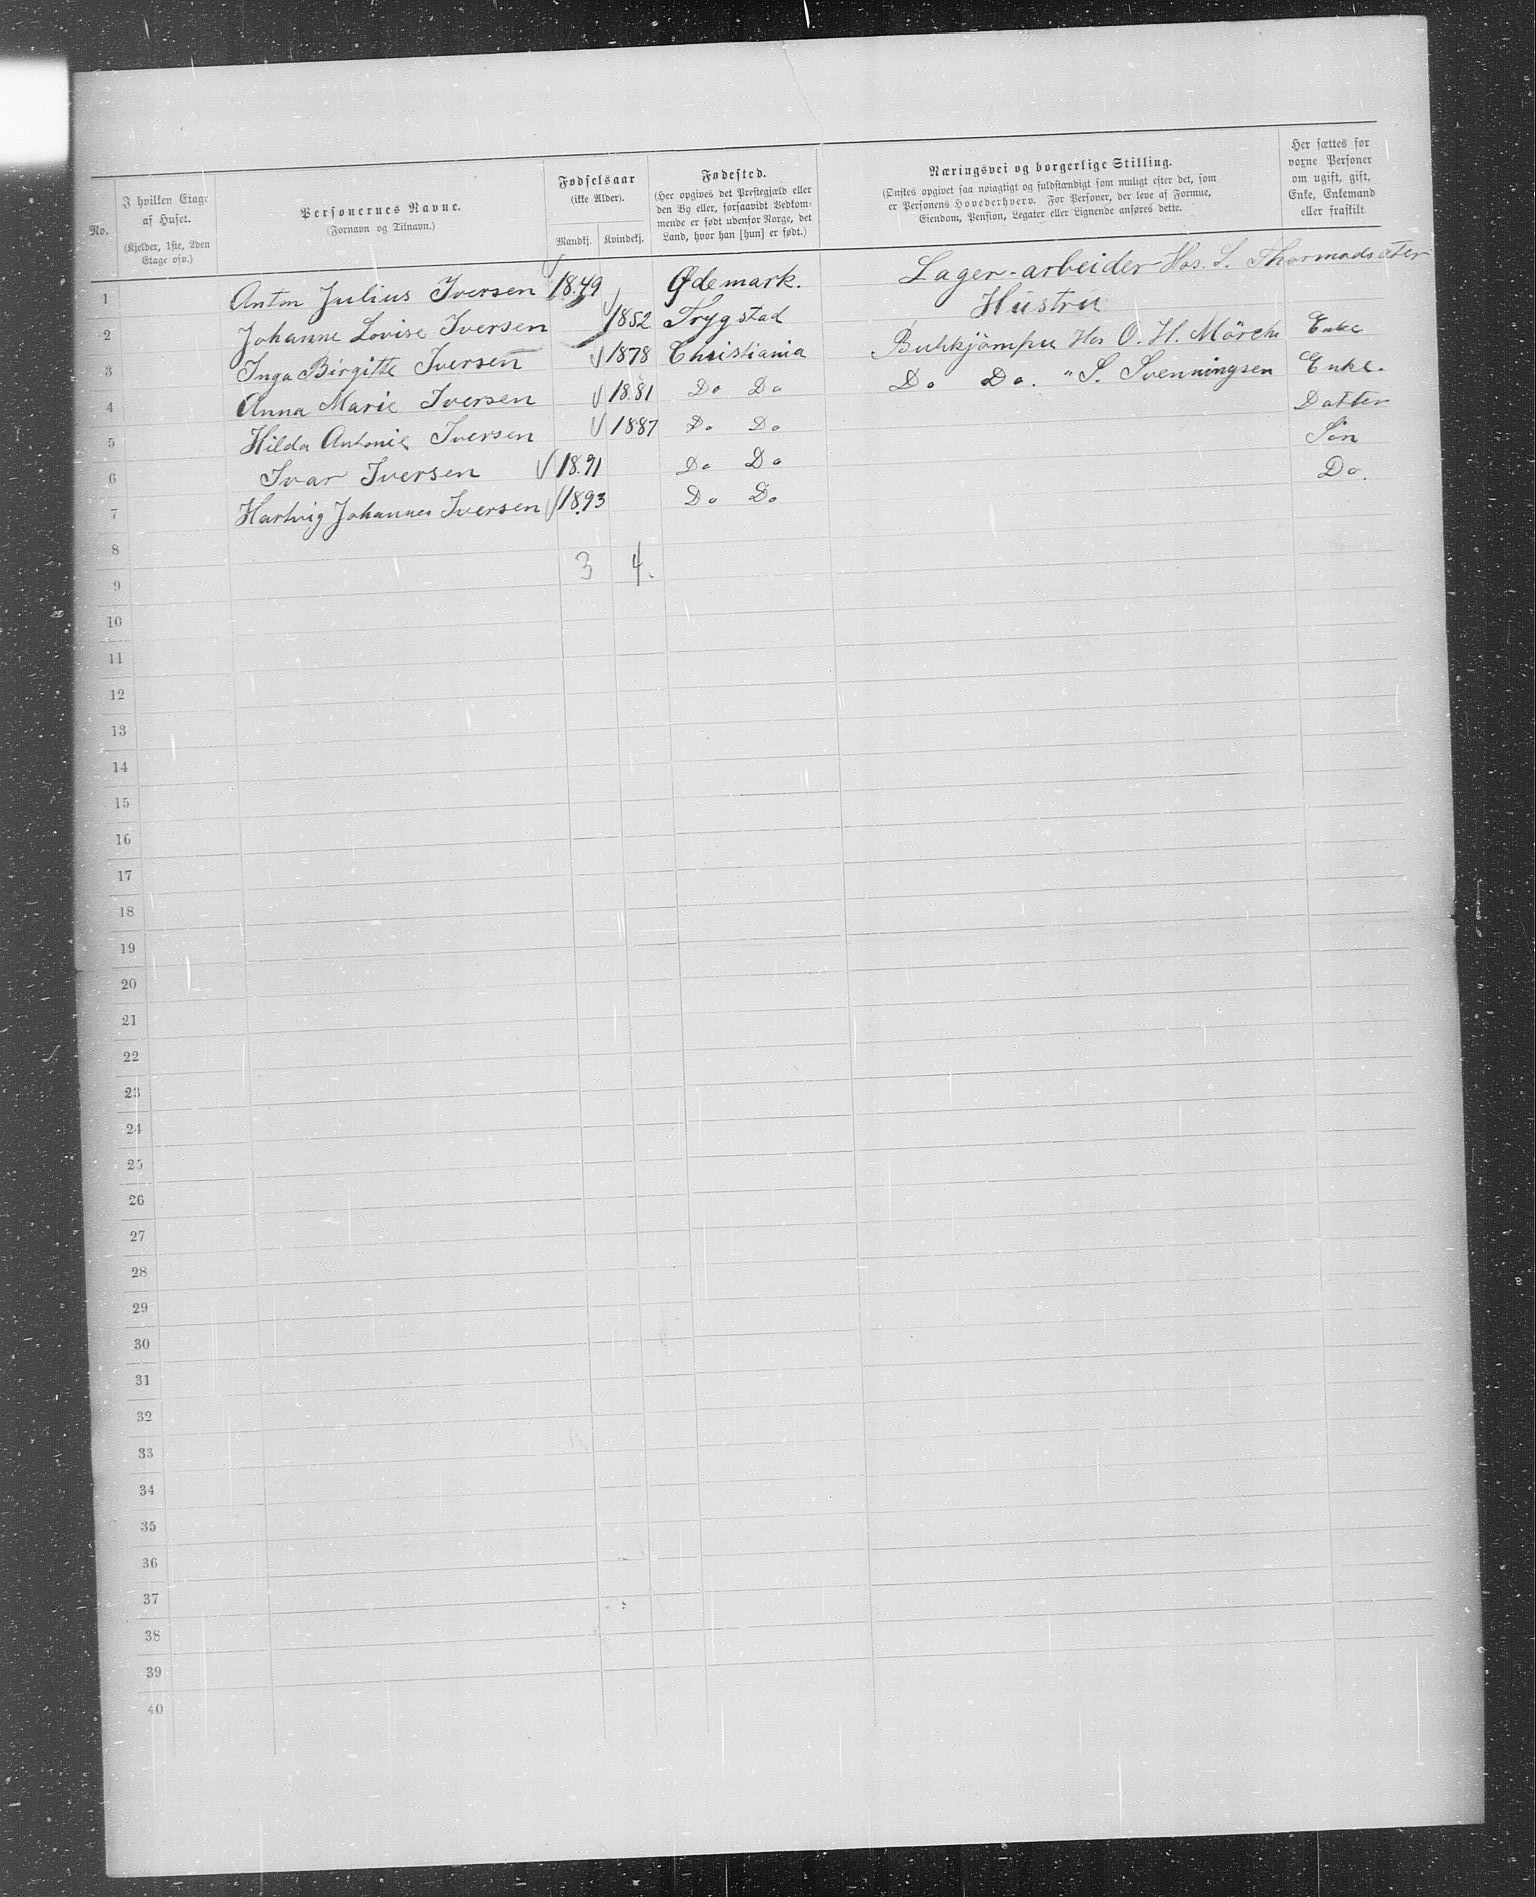 No.
I hvilken Etage
af Huset.
(Kjelder, 1ste, 2den
Etage osv.)
Personernes Navne.
(Fornavn og Tilnavn.)
Fødselsaar
(ikke Alder).
Mandkj. Kvindekj.
Fødested.
(Her opgives det Prestegjæld eller
den By eller, forsaavidt Vedkom-
mende er født udenfor Norge, det
Land, hvor han [hun] er født.)
Næringsvei og borgerlige Stilling.
(Ønskes opgivet saa nøiagtigt og fuldstændigt som muligt efter det, som
er Personens Hovederhverv. For Personer, der leve af Formue,
Eiendom, Pension, Legater eller Lignende anføres dette.
Her sættes for
voxne Personer
om ugift, gift,
Enke, Enkemand
eller fraskilt.
1 Anton Julius Iversen 1849 Ødemark. Lager-arbeider Hos. S. Thormodsæter
2 Johanne Lovise Iversen 1852 Trygstad Hustru
3 Inga Birgitte Iversen 1878 Christiania Hos O. H. Mörch Enke
4 Anna Marie Iversen 1881 Do Do Do Do. " S. Svenningsen Enke.
5 Hilda Antonie Iversen 1887 Do Do Datter
6 Ivar Iversen 1891 Do Do Sön
7 Hartvig Johannes Iversen 1893 Do Do Do.
8
3 4.
9
10
11
12
13
14
15
16
17
18
19
20
21
22
23
24
25
26
27
28
29
30
31
32
33
34
35
36
37
38
39
40